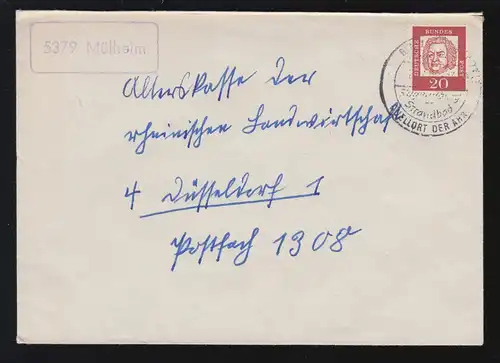 5379 Mülheim
DEUTSCHE BUNDESPOST
20
Strandbad
QUELLORT DER AHR
Alterskasse der
rheinischen Landwirtschaft
4 Düsseldorf 1
Postfach 1308